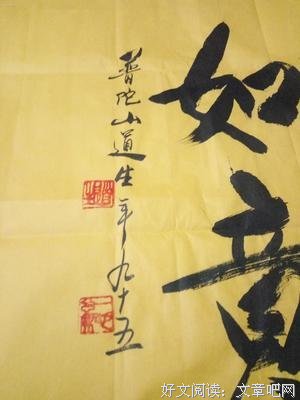 如意
普陀山道生年九十五
好文阅读：文章吧网